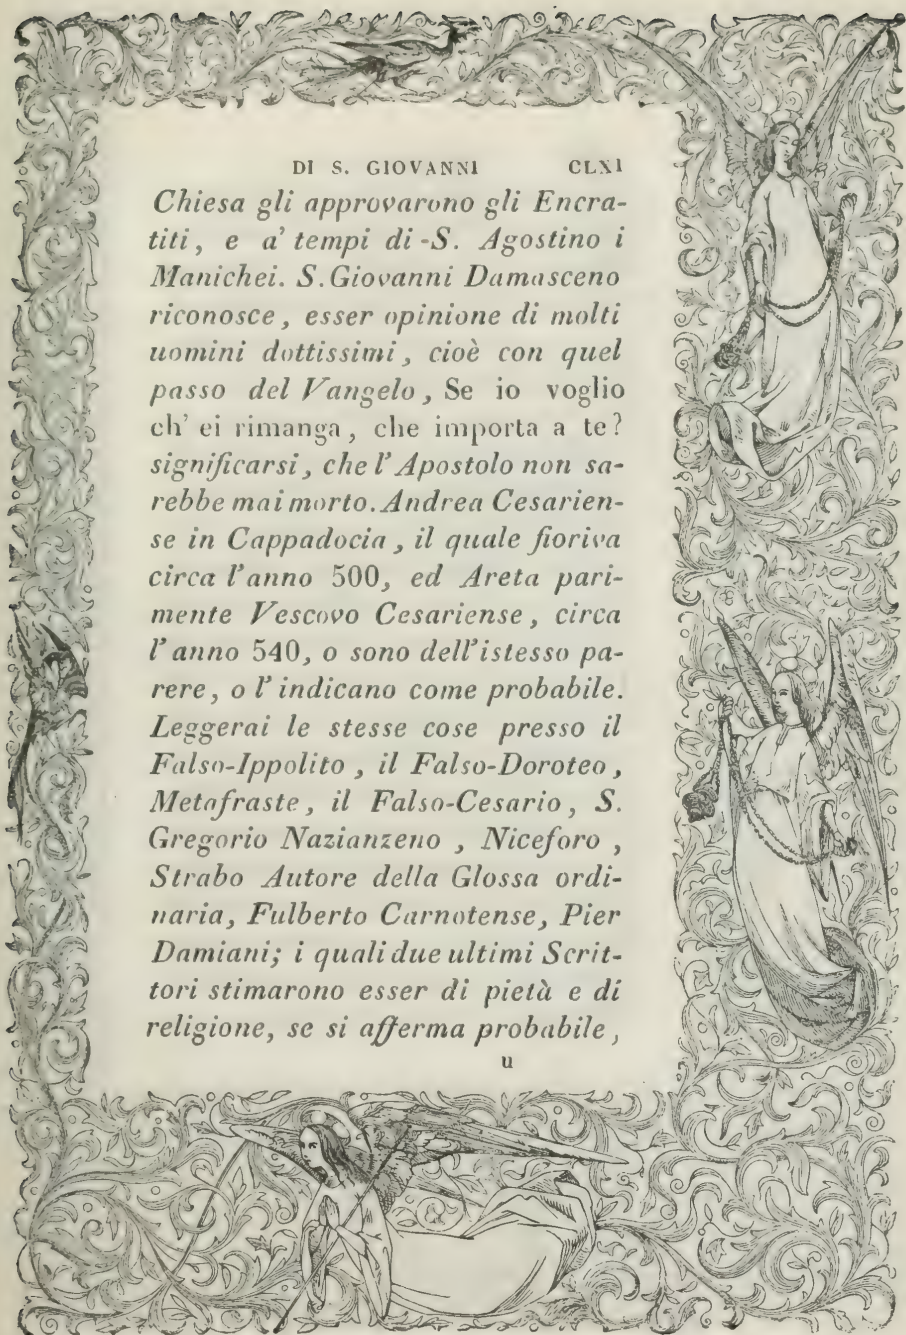 DI S. GIOVANNI CLXI
Chiesa gli approvarono gli Encra-
titi, e a' tempi di S. Agostino i
Manichei. S. Giovanni Damasceno
riconosce, esser opinione di molti
uomini dottissimi, cioè con quel
passo del Vangelo, Se io voglio
ch' ei rimanga, che importa a te?
significarsi, che l'Apostolo non sa-
rebbe mai morto. Andrea Cesarien-
se in Cappadocia, il quale fioriva
circa l'anno 500, ed Areta pari-
mente Vescovo Cesariense, circa
l'anno 540, o sono dell'istesso pa-
rere, o l'indicano come probabile.
Leggerai le stesse cose presso il
Falso-Ippolito, il Falso-Doroteo,
Metafraste, il Falso-Cesario, S.
Gregorio Nazianzeno, Niceforo,
Strabo Autore della Glossa ordi-
naria, Fulberto Carnotense, Pier
Damiani; i quali due ultimi Scrit-
tori stimarono esser di pietà e di
religione, se si afferma probabile,
u